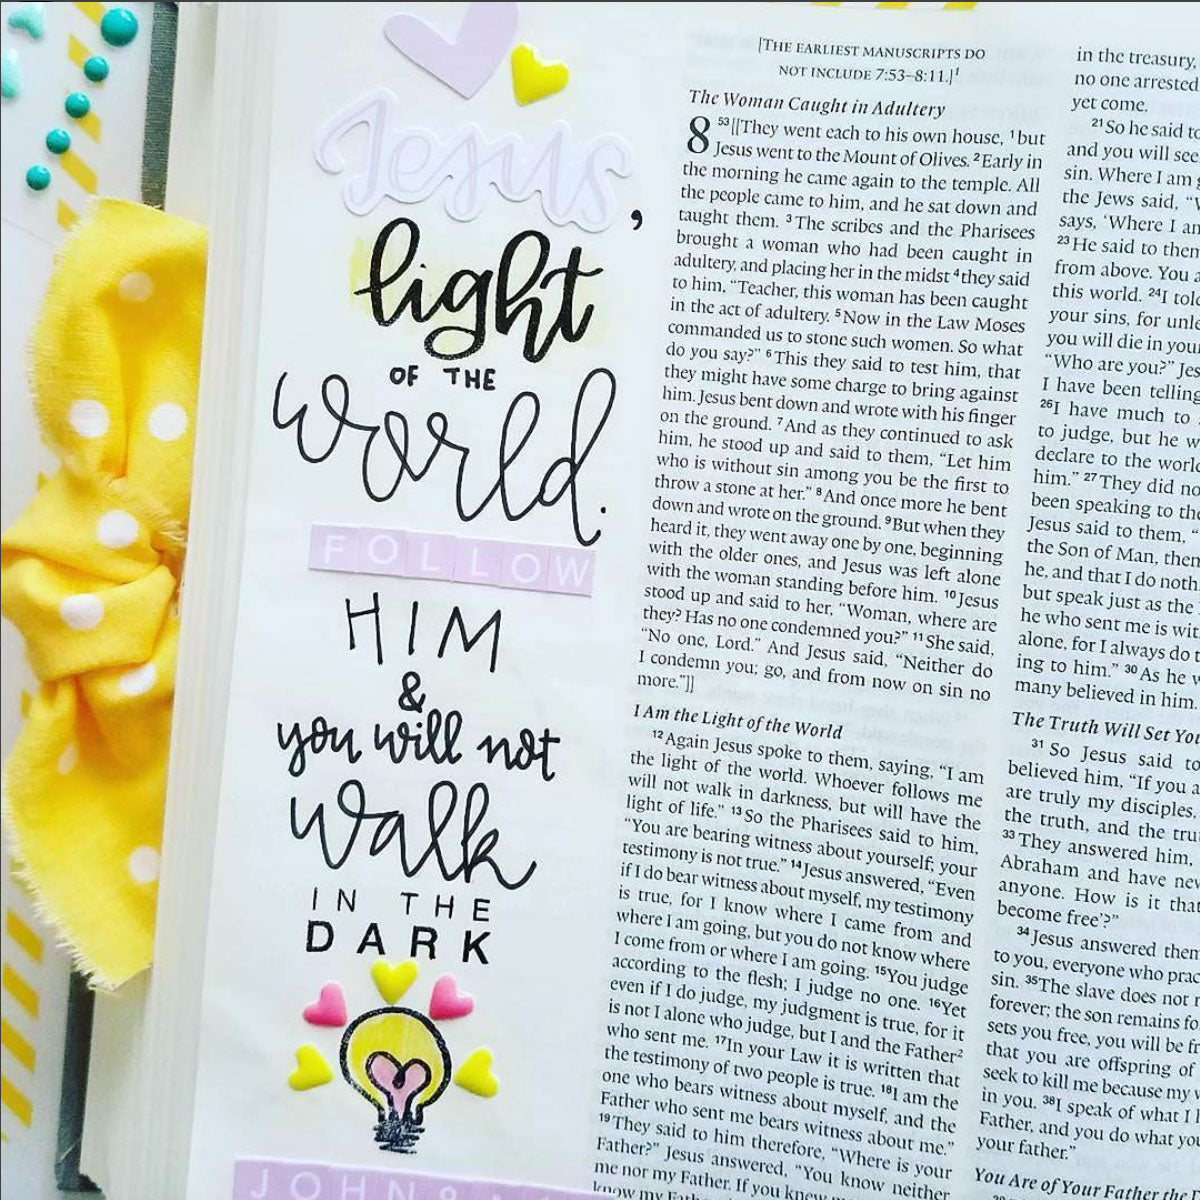 Jesus,
light
OF THE
world.
FOLLOW
HIM
&
you will not
walk
IN THE
DARK
[THE EARLIEST MANUSCRIPTS DO
NOT INCLUDE 7:53–8:11.]¹
The Woman Caught in Adultery
8 ⁵³[[They went each to his own house, ¹but
Jesus went to the Mount of Olives. ²Early in
the morning he came again to the temple. All
the people came to him, and he sat down and
taught them. ³The scribes and the Pharisees
brought a woman who had been caught in
adultery, and placing her in the midst ⁴they said
to him, “Teacher, this woman has been caught
in the act of adultery. ⁵Now in the Law Moses
commanded us to stone such women. So what
do you say?” ⁶This they said to test him, that
they might have some charge to bring against
him. Jesus bent down and wrote with his finger
on the ground. ⁷And as they continued to ask
him, he stood up and said to them, “Let him
who is without sin among you be the first to
throw a stone at her.” ⁸And once more he bent
down and wrote on the ground. ⁹But when they
heard it, they went away one by one, beginning
with the older ones, and Jesus was left alone
with the woman standing before him. ¹⁰Jesus
stood up and said to her, “Woman, where are
they? Has no one condemned you?” ¹¹She said,
“No one, Lord.” And Jesus said, “Neither do
I condemn you; go, and from now on sin no
more.”]]
I Am the Light of the World
¹²Again Jesus spoke to them, saying, “I am
the light of the world. Whoever follows me
will not walk in darkness, but will have the
light of life.” ¹³So the Pharisees said to him,
“You are bearing witness about yourself; your
testimony is not true.” ¹⁴Jesus answered, “Even
if I do bear witness about myself, my testimony
is true, for I know where I came from and
where I am going, but you do not know where
I come from or where I am going. ¹⁵You judge
according to the flesh; I judge no one. ¹⁶Yet
even if I do judge, my judgment is true, for it
is not I alone who judge, but I and the Father²
who sent me. ¹⁷In your Law it is written that
the testimony of two people is true. ¹⁸I am the
one who bears witness about myself, and the
Father who sent me bears witness about me.”
¹⁹They said to him therefore, “Where is your
Father?” Jesus answered, “You know neither
me nor my Father. If you knew
know my
in the treasury,
no one arrested
yet come.
²¹So he said to
and you will see
sin. Where I am
the Jews said,
says, ‘Where I am
²³He said to them
from above. You a
this world. ²⁴I told
your sins, for unle
you will die in your
“Who are you?” Jes
I have been telling
²⁶I have much to
to judge, but he w
declare to the world
him.” ²⁷They did no
been speaking to the
Jesus said to them, “
the Son of Man, then
he, and that I do noth
but speak just as the
he who sent me is wit
alone, for I always do t
ing to him.” ³⁰As he w
many believed in him.
The Truth Will Set You
³¹So Jesus said to
believed him, “If you a
are truly my disciples,
the truth, and the tru
³³They answered him,
Abraham and have nev
anyone. How is it that
become free’?”
³⁴Jesus answered them
to you, everyone who prac
sin. ³⁵The slave does not r
forever; the son remains fo
sets you free, you will be fr
that you are offspring of
seek to kill me because my
in you. ³⁸I speak of what I
Father, and you do what you
your father.”
You Are of Your Father the